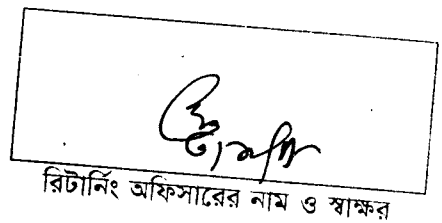 রিটার্নিং অফিসারের নাম ও স্বাক্ষর